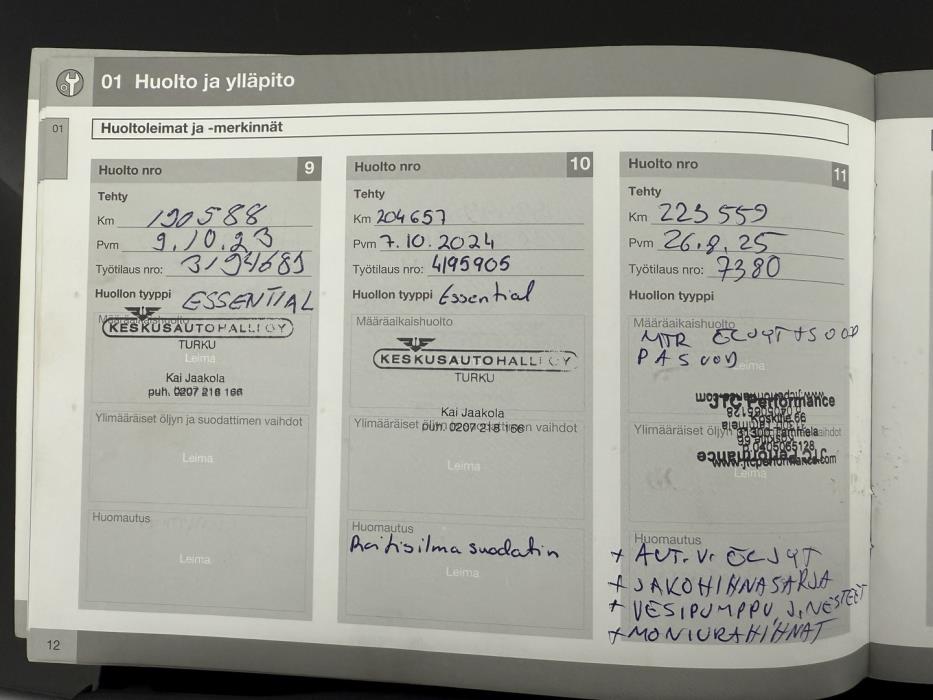 01 Huolto ja ylläpito
01
Huoltoleimat ja -merkinnät
Huolto nro 9
Tehty
Km 190588
Pvm 9.10.23
Työtilaus nro: 3194689
Huollon tyyppi ESSENTIAL
Määräaikaishuolto
KESKUSAUTOHALLI OY
TURKU
Leima
Kai Jaakola
puh. 0207 218 166
Ylimääräiset öljyn ja suodattimen vaihdot
Leima
Huomautus
Leima
Huolto nro 10
Tehty
Km 204657
Pvm 7.10.2024
Työtilaus nro: 4195905
Huollon tyyppi Essential
Määräaikaishuolto
KESKUSAUTOHALLI OY
TURKU
Kai Jaakola
puh. 0207 218 166
Ylimääräiset öljyn ja suodattimen vaihdot
Leima
Huomautus
Raitisilmasuodatin
Leima
Huolto nro 11
Tehty
Km 223559
Pvm 26.8.25
Työtilaus nro: 7380
Huollon tyyppi
Määräaikaishuolto
MTR ÖLJYT + SUOD
PA SUOD
Leima
JTC Performance
Koskitie 66
31300 Tammela
p. 0405065128
www.jtcperformance.com
Ylimääräiset öljyn vaihdot
Leima
Huomautus
+ AUT. V. ÖLJYT
+ JAKOHIHNASARJA
+ VESIPUMPPU, J.NESTEET
+ MONIURAHIHNAT
12